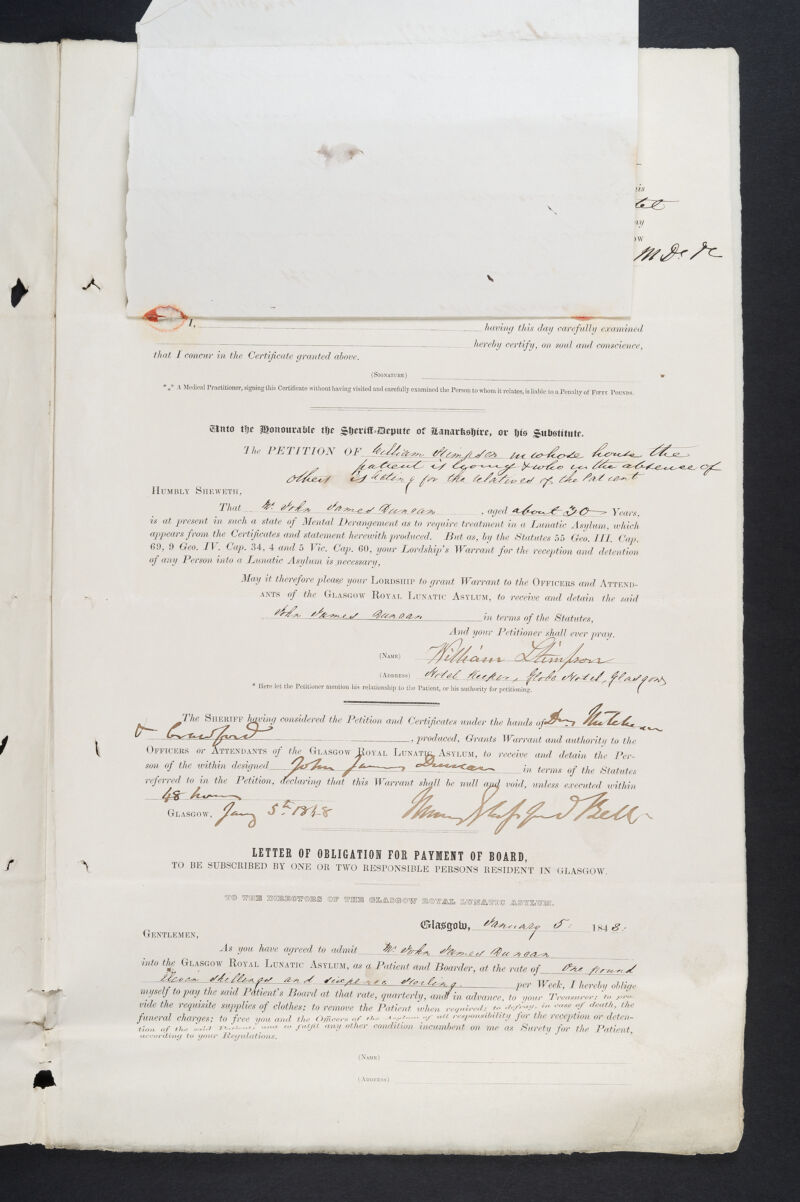 is
tel
ay
ow
M.D. &c
I, having this day carefully examined
hereby certify, on soul and conscience,
that I concur in the Certificate granted above.
(Signature) *
*** A Medical Practitioner, signing this Certificate without having visited and carefully examined the Person to whom it relates, is liable to a Penalty of Fifty Pounds.
Unto the Honourable the Sheriff-Depute of Lanarkshire, or his Substitute.
The PETITION OF William Stimpson in whose house the
patient is lying & who in the absence of
others is acting for the relatives of the Patient
Humbly Sheweth,
That Mr. John James Duncan, aged about 30 Years,
is at present in such a state of Mental Derangement as to require treatment in a Lunatic Asylum, which
appears from the Certificates and statement herewith produced. But as, by the Statutes 55 Geo. III. Cap.
69, 9 Geo. IV. Cap. 34, 4 and 5 Vic. Cap. 60, your Lordship's Warrant for the reception and detention
of any Person into a Lunatic Asylum is necessary,
May it therefore please your Lordship to grant Warrant to the Officers and Attend-
ants of the Glasgow Royal Lunatic Asylum, to receive and detain the said
John James Duncan in terms of the Statutes,
And your Petitioner shall ever pray.
(Name) William Stimpson
(Address) Hotel Keeper, Globe Hotel, Glasgow
* Here let the Petitioner mention his relationship to the Patient, or his authority for petitioning.
The Sheriff having considered the Petition and Certificates under the hands of Drs Hutcheson
& Crawford, produced, Grants Warrant and authority to the
Officers or Attendants of the Glasgow Royal Lunatic Asylum, to receive and detain the Per-
son of the within designed John James Duncan in terms of the Statutes
referred to in the Petition, declaring that this Warrant shall be null and void, unless executed within
48 hours
Glasgow, Jany 5th. 1848 Henry Glassford Bell
LETTER OF OBLIGATION FOR PAYMENT OF BOARD,
TO BE SUBSCRIBED BY ONE OR TWO RESPONSIBLE PERSONS RESIDENT IN GLASGOW.
TO THE DIRECTORS OF THE GLASGOW ROYAL LUNATIC ASYLUM.
Glasgow, January 5. 1848.
Gentlemen,
As you have agreed to admit Mr. John James Duncan
into the Glasgow Royal Lunatic Asylum, as a Patient and Boarder, at the rate of One pound
Eleven shillings and sixpence Sterling per Week, I hereby oblige
myself to pay the said Patient's Board at that rate, quarterly, and in advance, to your Treasurer; to pro-
vide the requisite supplies of clothes; to remove the Patient when required; to defray, in case of death, the
funeral charges; to free you and the Officers of the Asylum of all responsibility for the reception or deten-
tion of the said Patient; and to fulfil any other condition incumbent on me as Surety for the Patient,
according to your Regulations.
(Name)
(Address)